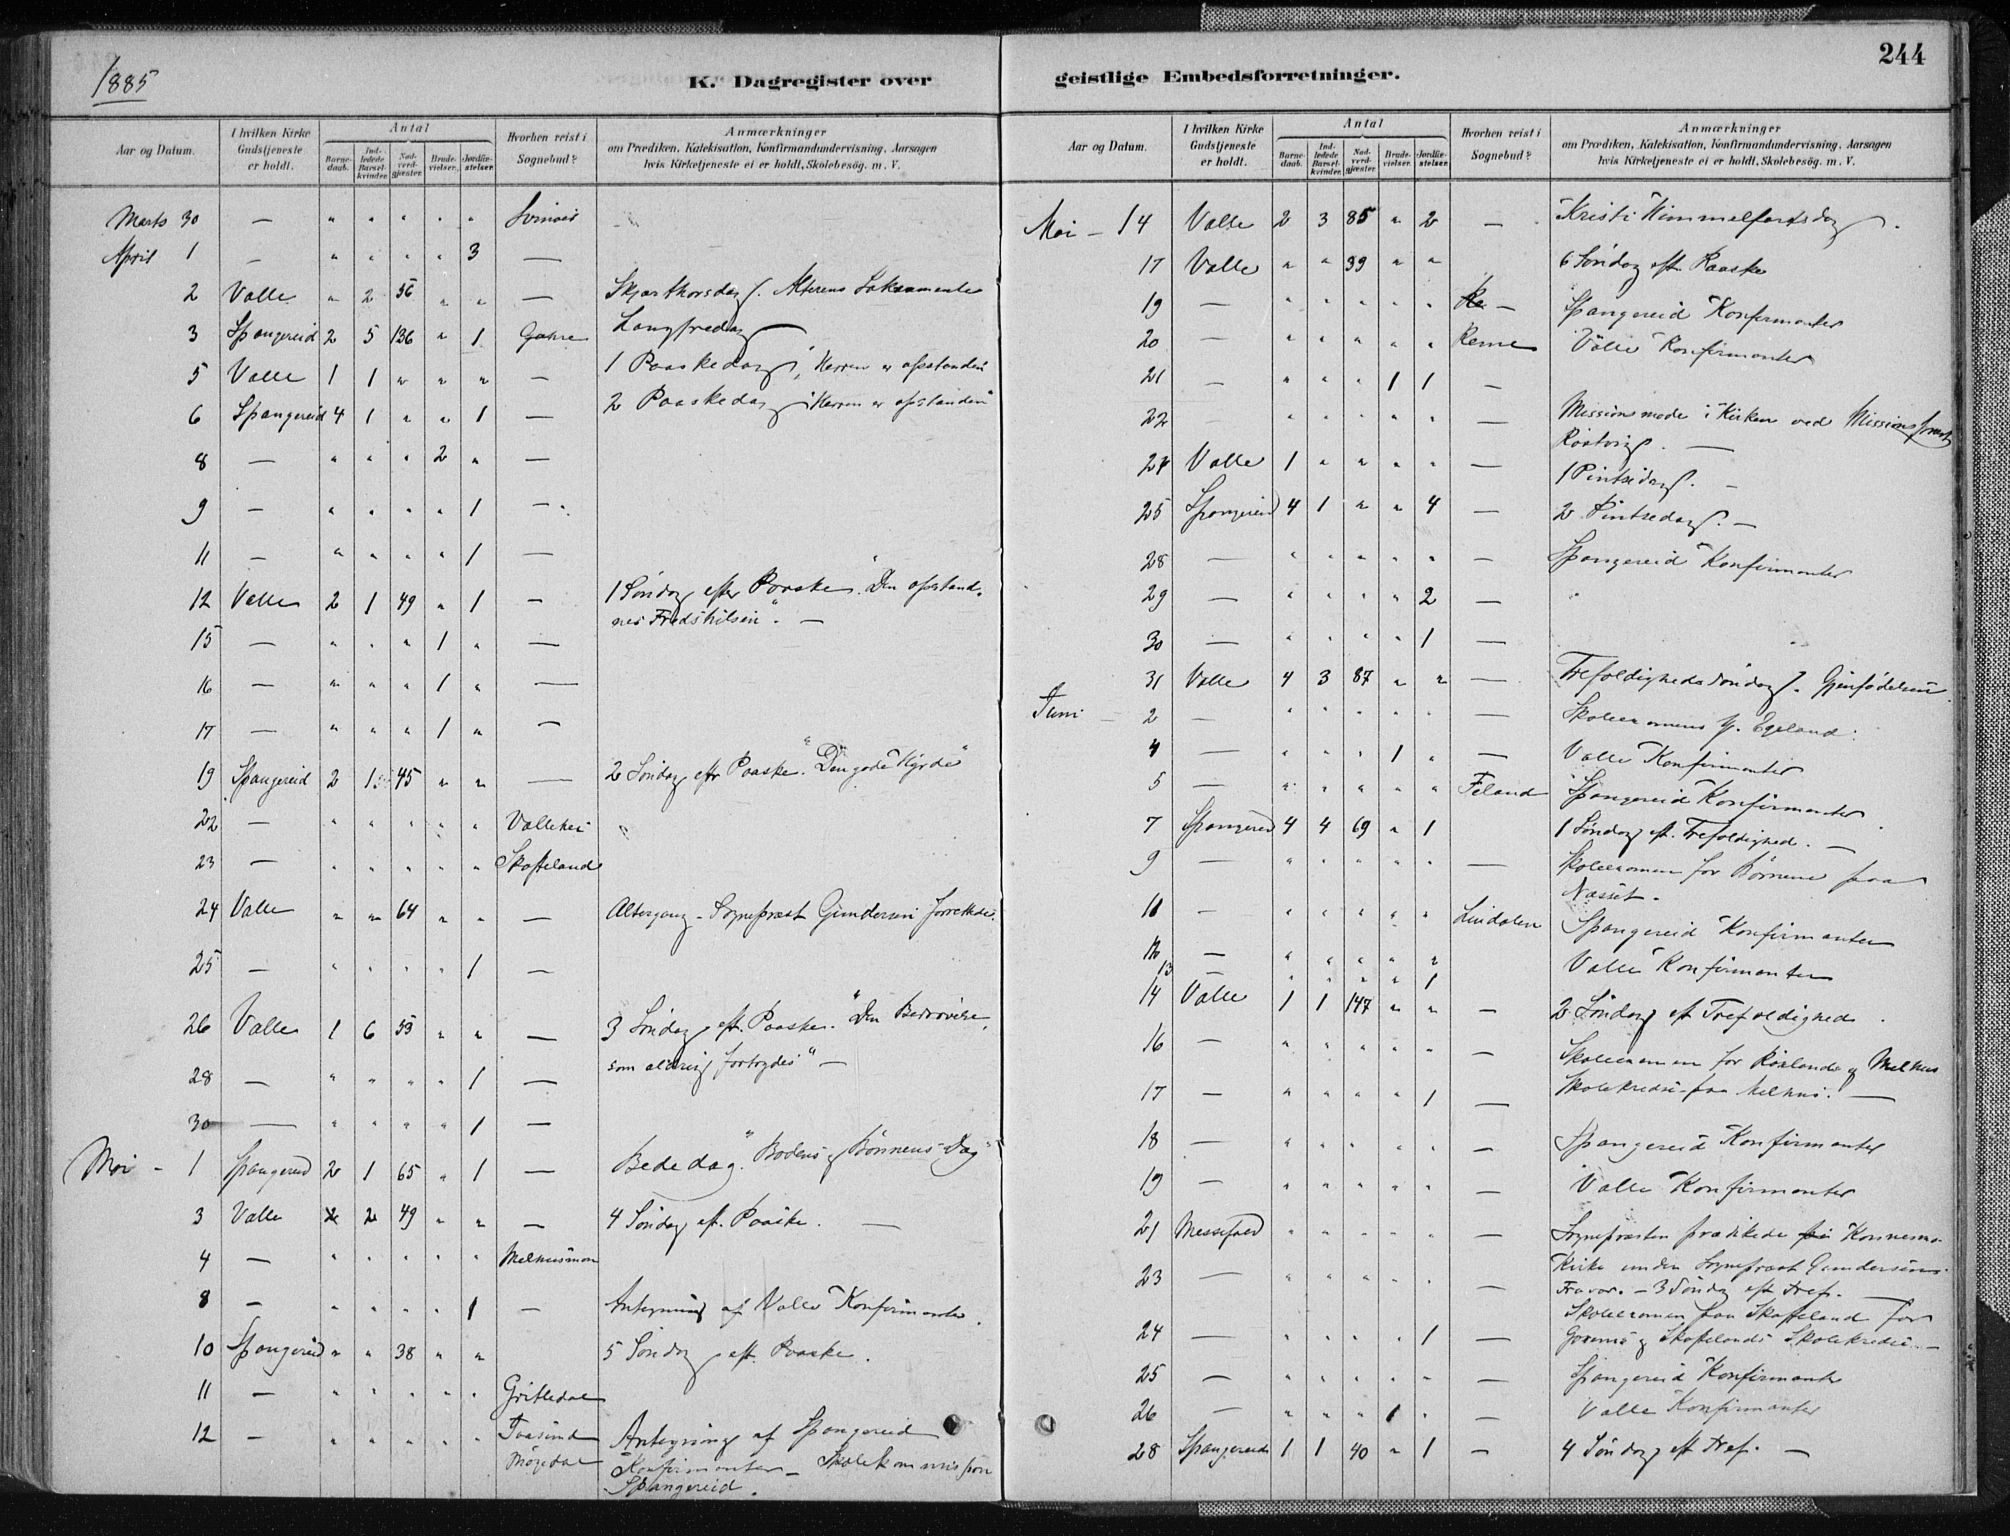 244
1885
K. Dagregister over
geistlige Embedsforretninger.
Aar og Datum.
I hvilken Kirke Gudstjeneste er holdt.
Antal
Barnedaab.
Indledede Barselkvinder.
Nadverdgjæster.
Brudevielser.
Jordfæstelser.
Hvorhen reist i Sognebud?
Anmærkninger
om Prædiken, Katekisation, Konfirmandundervisning, Aarsagen
hvis Kirketjeneste ei er holdt, Skolebesög. m. V.
Marts 30 — " " " " " Svinøis
April 1 — " " " " 3 —
2 Valle " 2 56 " " — Skjærthorsdag. Alterens Sakramente
3 Spangereid 2 5 136 " 1 Gahre Langfredag —
5 Valle 1 1 " " " — 1 Paaskedag, "Herren er opstanden"
6 Spangereid 4 1 " " 1 — 2 Paaskedag "Herren er opstanden"
8 — " " " 2 " —
9 — " " " " 1 —
11 — " " " " 1 —
12 Valle 2 1 49 " 1 — 1 Søndag efter Paaske. "Den opstand-
nes Fredshilsen". —
15 — " " " 1 " —
16 — " " " 1 " —
17 — " " " 1 " —
19 Spangereid 2 1 45 " " — 2 Søndag eftr Paaske. "Den gode Hyrde"
22 — " " " " " Vallehei
23 — " " " " " Skofteland
24 Valle " " 64 " " — Altergang - Sognepræst Gundersen forrettede.
25 — " " " " 1 —
26 Valle 1 6 53 " " — 3 Søndag eft. Paaske. "Den Bedrøvelse,
som aldrig fortrydes" —
28 — " " " " 1 —
30 — " " " " 1 —
Mai - 1 Spangereid 2 1 65 " 1 — Bededag. "Bodens og Bønnens Dag"
3 Valle 2 2 49 " " — 4 Søndag eft. Paaske. —
4 — " " " " " Melhusmon
8 — " " " " 1 — Antegning af Valle Konfirmanter.
10 Spangereid " " 38 " " 5 Søndag eft. Paaske.
11 — " " " " " Gritledal
12 — " " " " " Antegning af Spangereid
Konfirmanter — Skolekommission
Spangereid.
Aar og Datum.
I hvilken Kirke Gudstjeneste er holdt.
Antal
Barnedaab.
Indledede Barselkvinder.
Nadverdgjæster.
Brudevielser.
Jordfæstelser.
Hvorhen reist i Sognebud?
Anmærkninger
om Prædiken, Katekisation, Konfirmandundervisning, Aarsagen
hvis Kirketjeneste ei er holdt, Skolebesög. m. V.
Mai — 14 Valle 2 3 85 " 2 — Kristi Himmelfartsdag.
17 Valle " " 39 " " 6 Søndag eft. Paaske
19 — " " " " " — Spangereid Konfirmanter
20 — " " " " " Reme Valle Konfirmanter
21 — " " " 1 1 —
22 " " " " " — Missionsmøde i Kirken ved Missionsprest
24 Valle 1 " " " " — 1 Pintsedag. —
25 Spangereid 4 1 " " 4 — 2 Pintsedag. —
28 — " " " " " — Spangereid Konfirmanter
29 — " " " " 2 —
30 — " " " " 1 —
31 Valle 4 3 87 " " — Trefoldigheds Søndag. Gjenfødelsen
Juni — 2 — " " " " " — Skoleexamen p. Egeland.
4 — " " " 1 " — Valle Konfirmanter
5 — " " " " " Feland Spangereid Konfirmanter
7 Spangereid 4 4 69 " 1 1 Søndag eft. Trefoldighed. —
9 — " " " " " — Skoleexamen for Børnene paa
Næsset.
11 — " " " " " Lindalen Spangereid Konfirmanter
12 — " " " " " Valle Konfirmanter
13 — " " " " 1
14 Valle 1 1 147 " " — 2 Søndag eft Trefoldighed.
16 — " " " " " — Skoleexamen for Røxland og Melhus
Skolekredse paa Melhus. —
17 — " " " " 1 —
18 — " " " " " — Spangereid Konfirmanter
19 — " " " " " — Valle Konfirmanter
21 Messefald " " " " " — Sognepræsten prædikede i Konsmo
Kirke under Sognepræst Gundersens
Fravær. — 3 Søndag eft Tref. —
23 — " " " " " — Skoleexamen paa Skofteland for
24 — " " " " 1 — og Skoftelands Skolekredse —
25 — " " " " " — Spangereid Konfirmanter
26 — " " " 1 " — Valle Konfirmanter
28 Spangereid 1 1 40 " 1 — 4 Søndag eft Tref. —